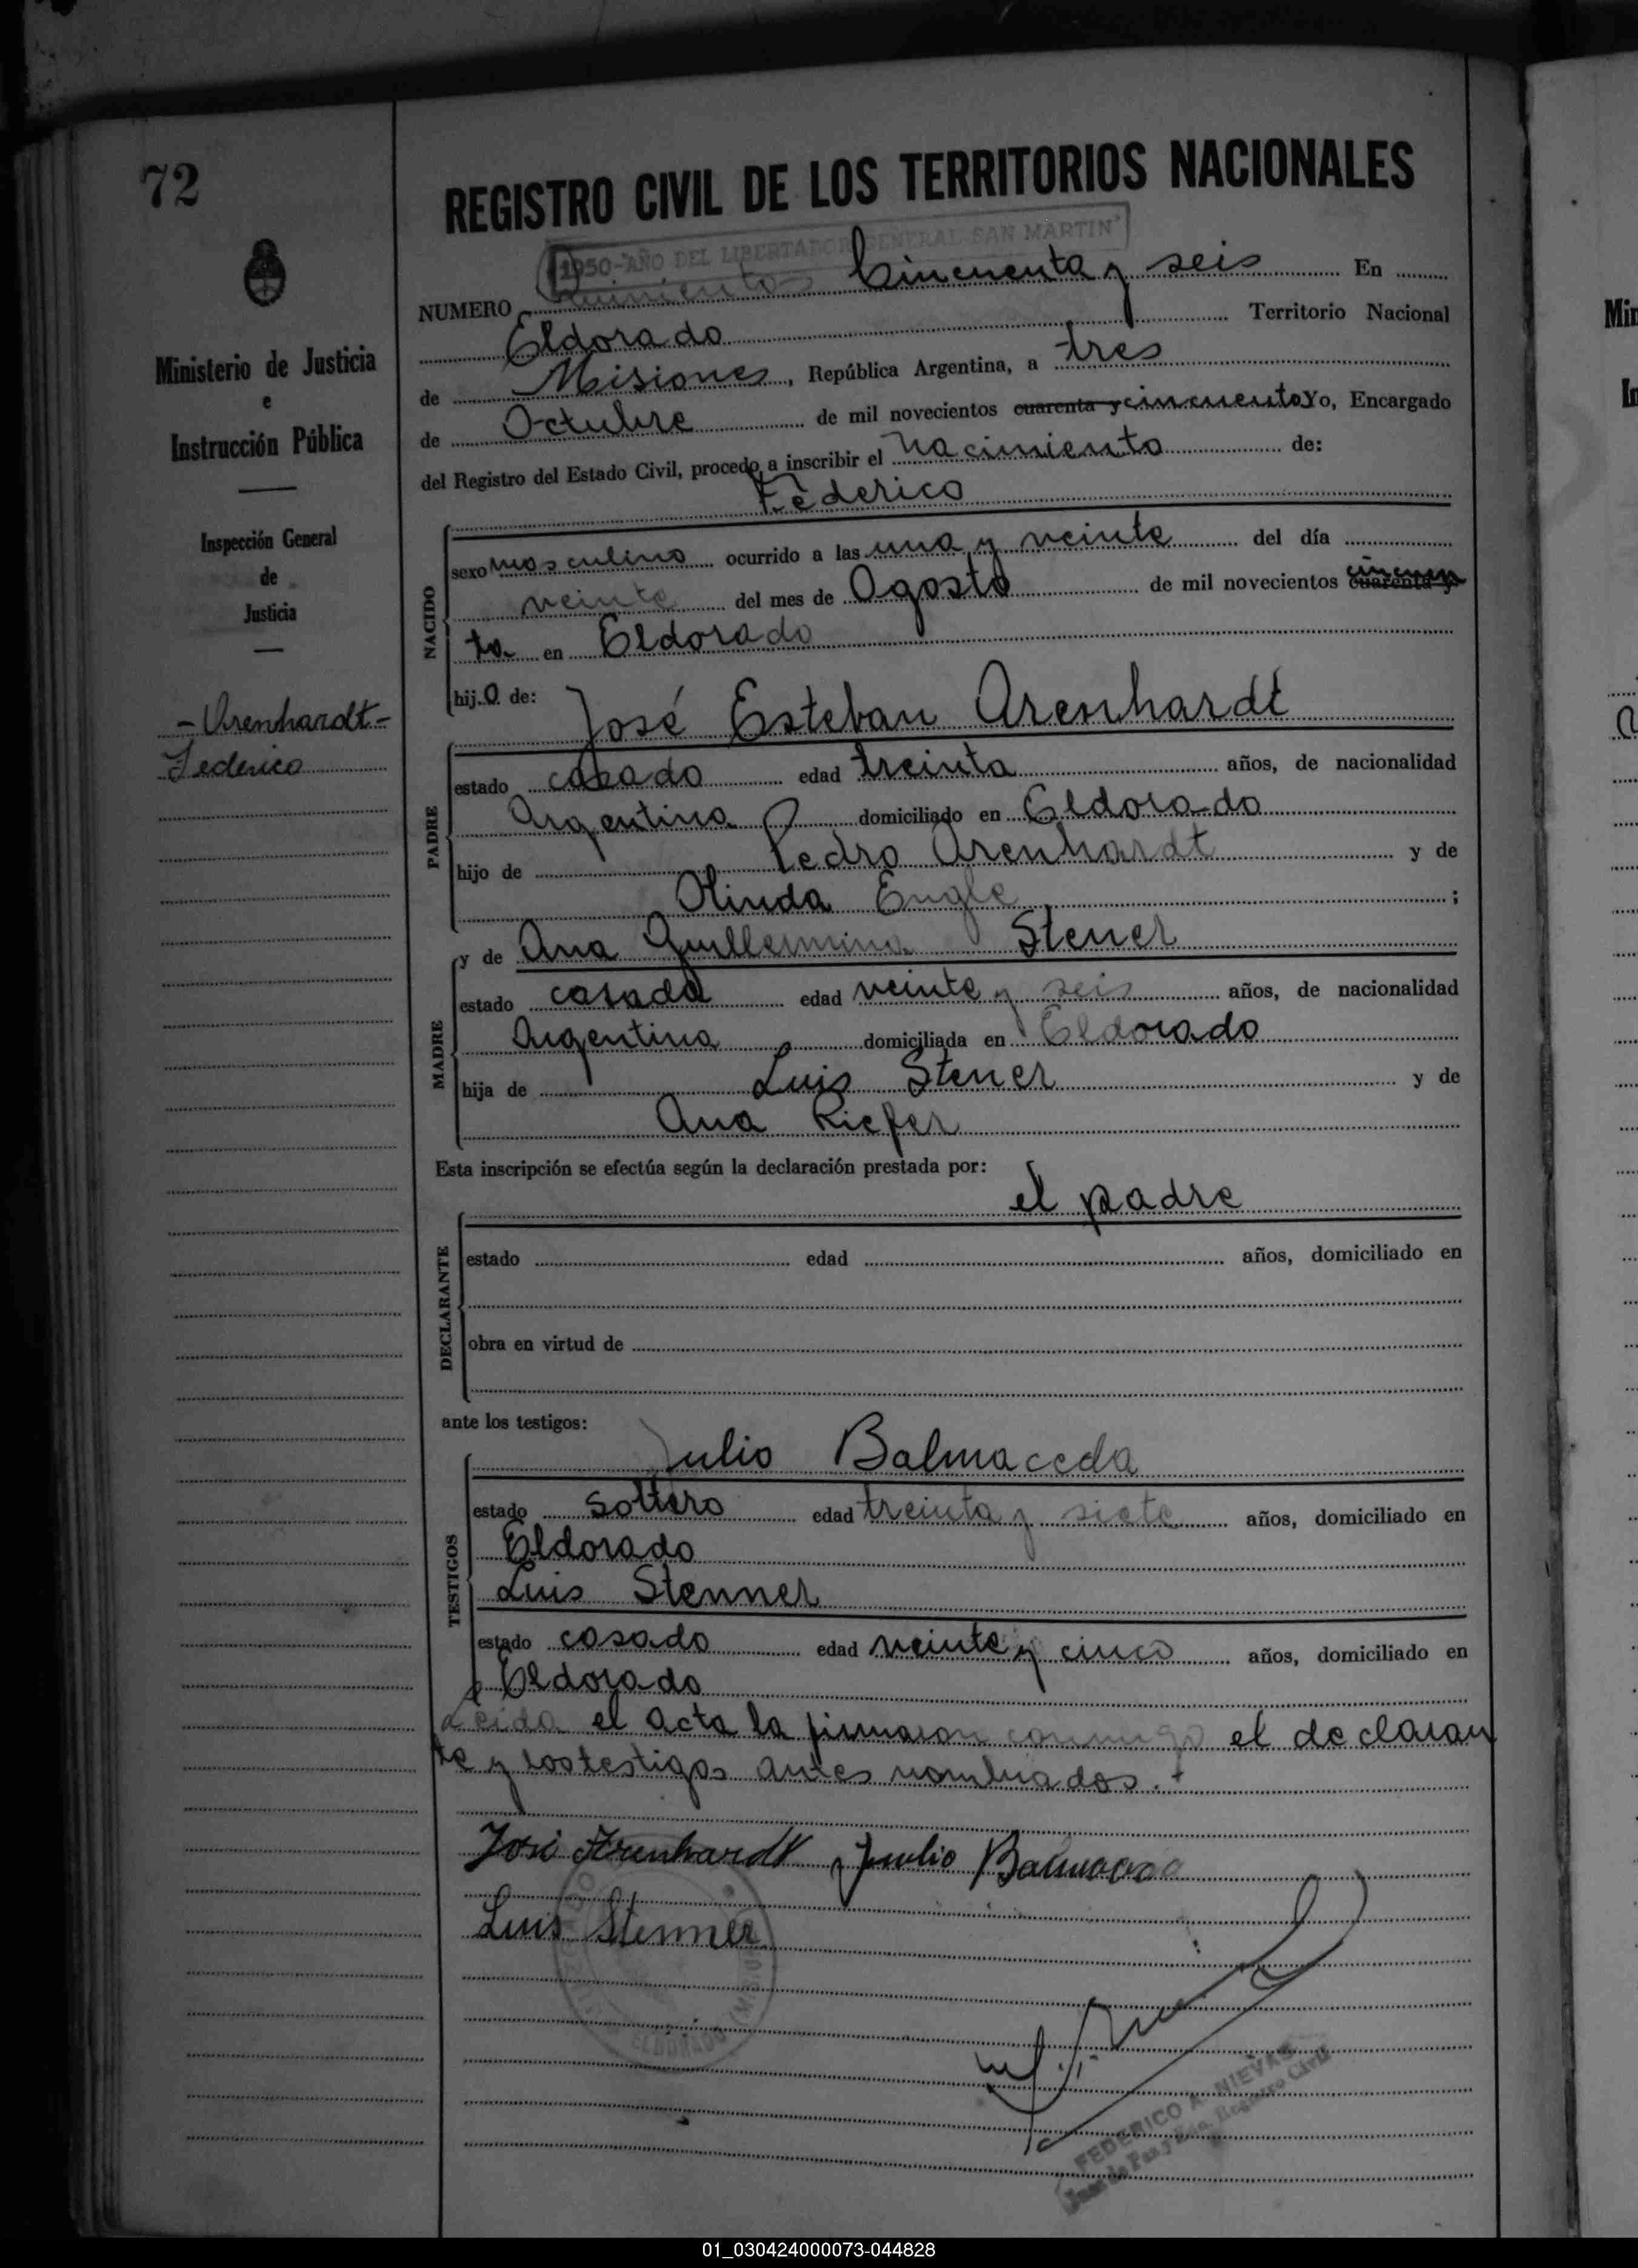 72
Ministerio de Justicia
e
Instrucción Pública
Inspección General
de
Justicia
- Arenhardt -
Federico
REGISTRO CIVIL DE LOS TERRITORIOS NACIONALES
1950-AÑO DEL LIBERTADOR GENERAL SAN MARTIN
NUMERO Quinientos Cincuenta y seis En
Eldorado Territorio Nacional
de Misiones, República Argentina, a tres
de Octubre de mil novecientos cuarenta y cincuenta Yo, Encargado
del Registro del Estado Civil, procedo a inscribir el nacimiento de:
Federico
NACIDO
sexo masculino ocurrido a las una y veinte del día
veinte del mes de Agosto de mil novecientos cuarenta y cincuen
ta en Eldorado
hij.o de: José Esteban Arenhardt
PADRE
estado casado edad treinta años, de nacionalidad
Argentina domiciliado en Eldorado
hijo de Pedro Arenhardt y de
Olinda Engle ;
y de Ana Guillermina Stener
MADRE
estado casada edad veinte y seis años, de nacionalidad
Argentina domiciliada en Eldorado
hija de Luis Stener y de
Ana Riefer
Esta inscripción se efectúa según la declaración prestada por:
el padre
DECLARANTE
estado edad años, domiciliado en
obra en virtud de
ante los testigos:
Julio Balmaceda
TESTIGOS
estado soltero edad treinta y siete años, domiciliado en
Eldorado
Luis Stenner
estado casado edad veinte y cinco años, domiciliado en
Eldorado
Leida el acta la firmaron conmigo el declaran
te y los testigos antes nombrados.
José Arenhardt Julio Balmaceda
Luis Stenner
ELDORADO
FEDERICO A. NIEVAS
Juez de Paz y Enc. Registro Civil
01_030424000073-044828